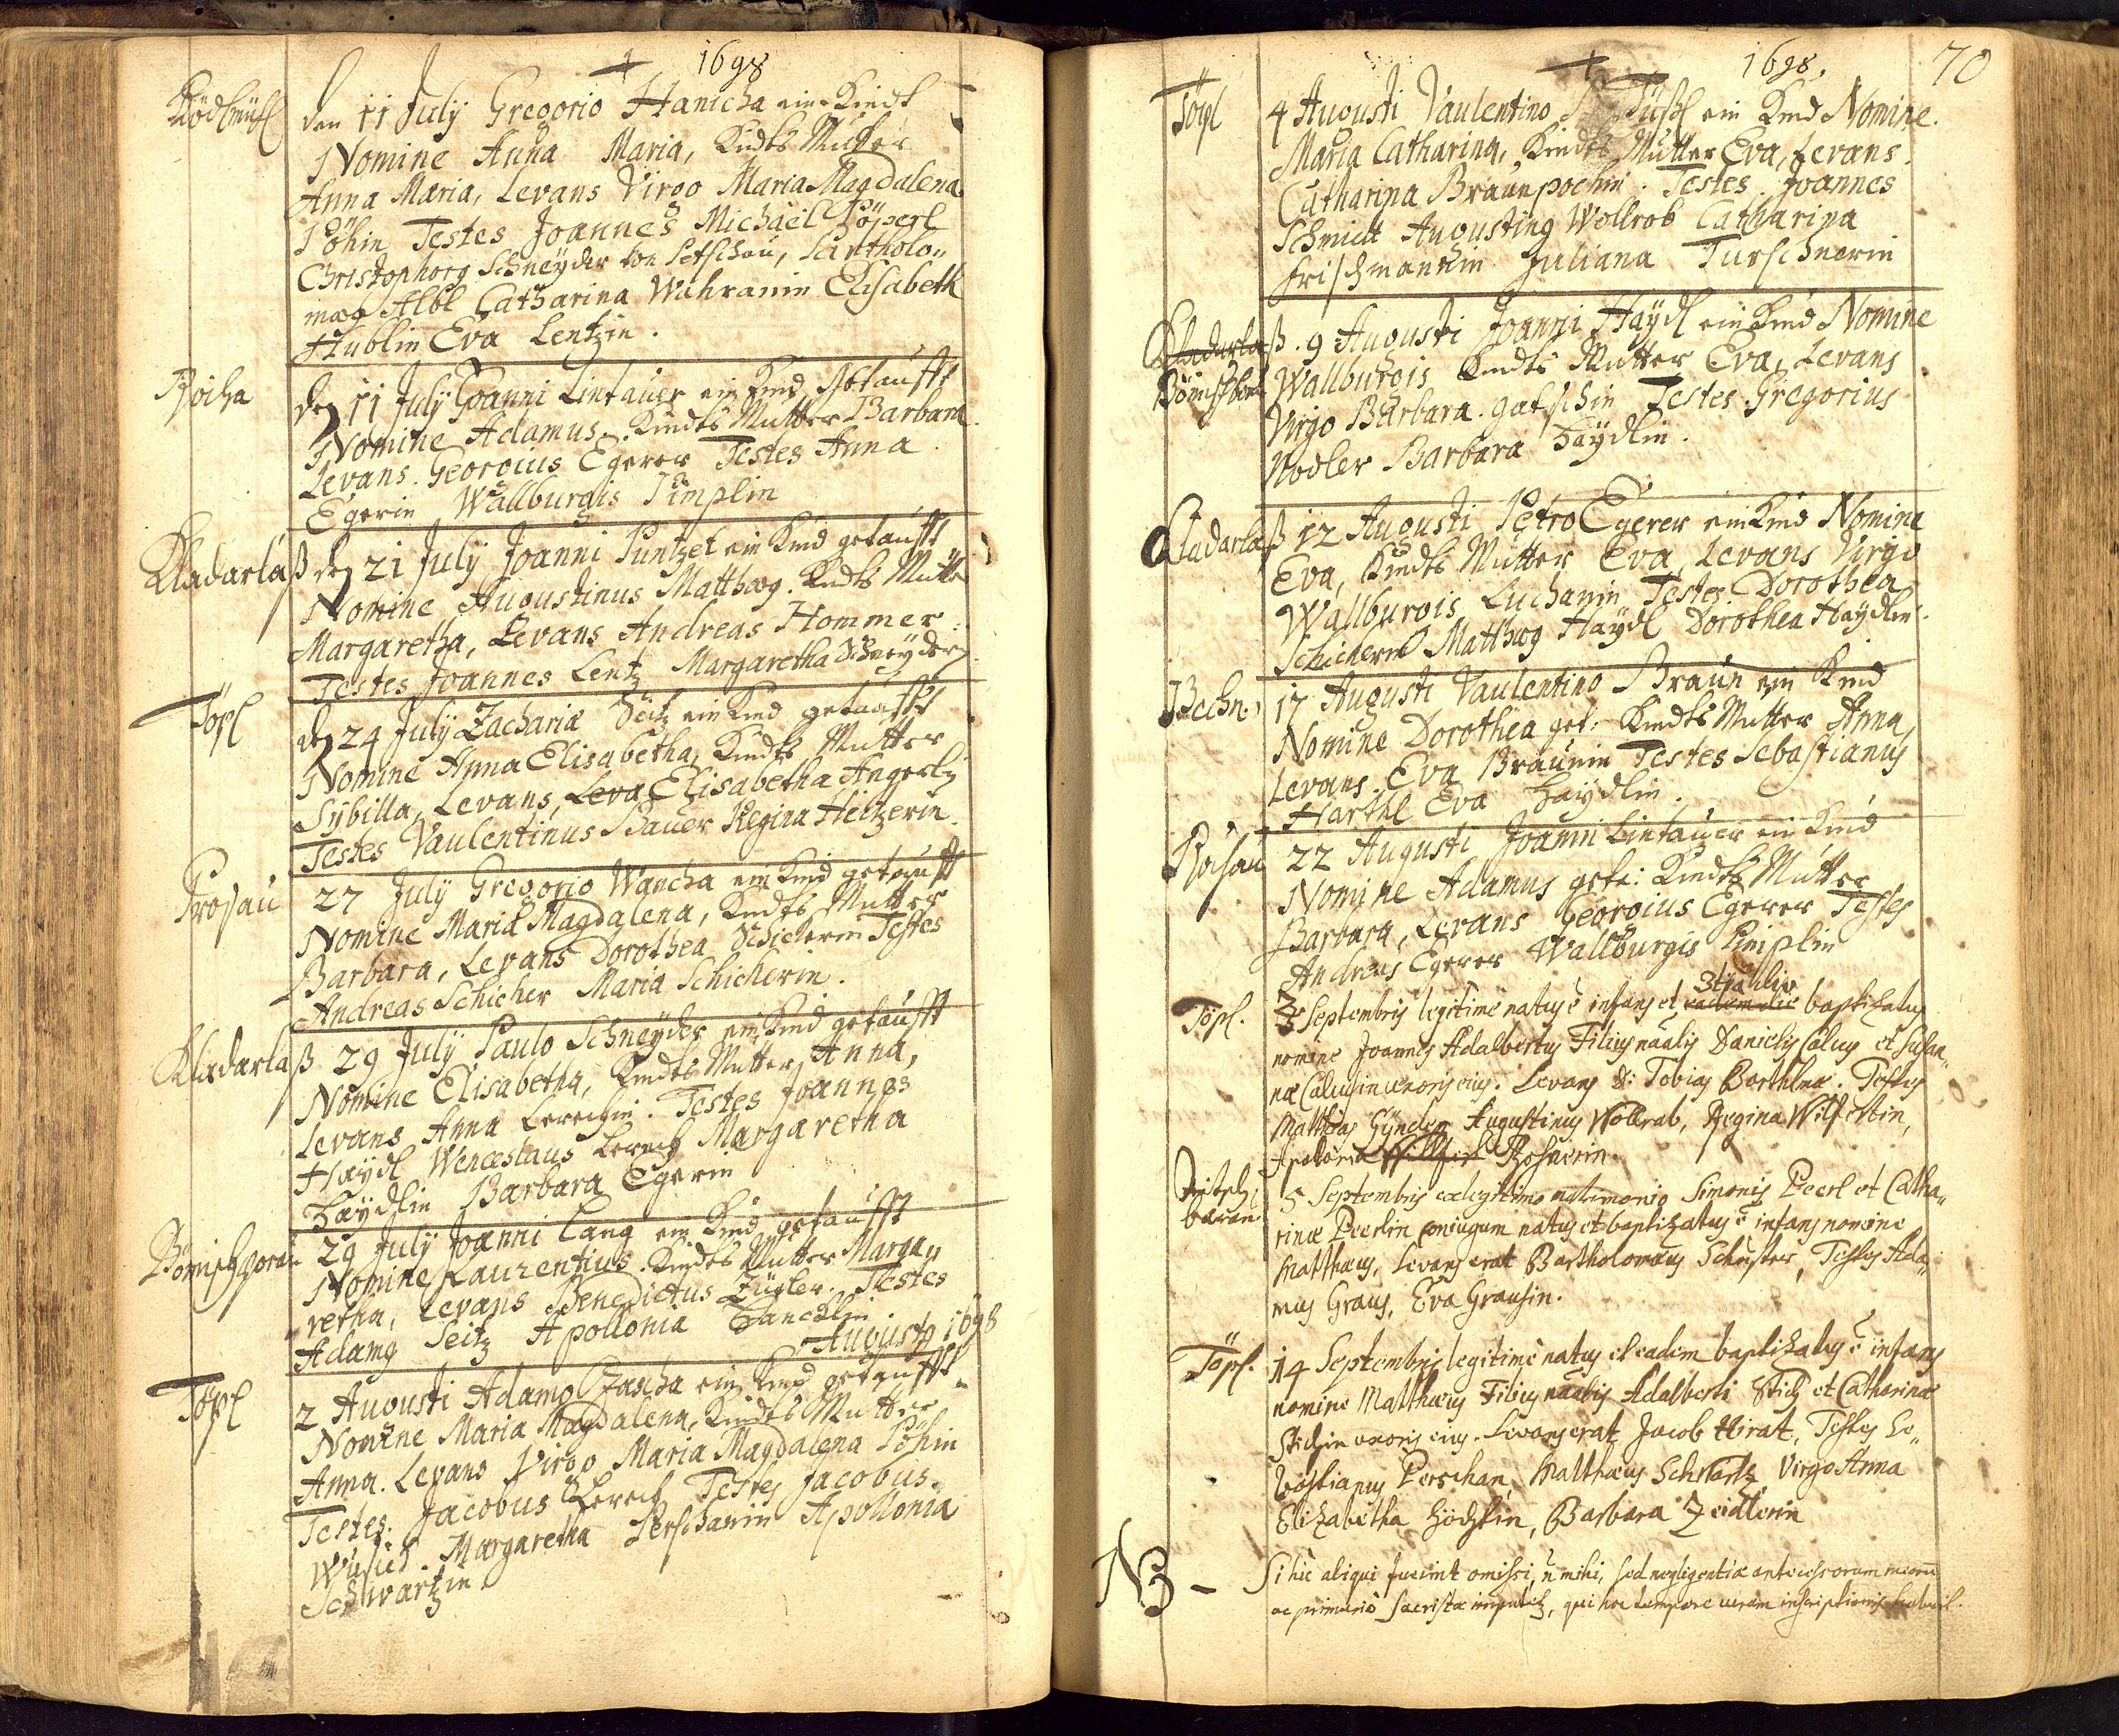 1698
Rödlmühl den 11 July Gregorio Hanicha ein Kindt
Nomine Anna Maria, Kindts Mutter
Anna Maria, Levans Virgo Maria Magdalena
Pöhin Testes Joannes Michaël Pöperl
Christophorg Schneÿder von Petschau, Bartholo„
mæg Albl Catharina Wahranin Elisabeth
Hublin Eva Lentzin.
den 11 July Joanni Lintauer ein Kind getaufft
Nomine Adamus. Kindts Mutter Barbara
Levans. Georgius Egerer Testes Anna
Egerin Wallburgis Pimplin
Kladarlaß den 21 July Joanni Puntzet ein Kind getaufft
Nomine Augustinus Matthæg. Kindts Mutter
Margaretha, Levans Andreas Hommer
Testes Joannes Lentz Margaretha Schneÿderin
Töpl den 24 July Zachariæ Seitz ein Kind getaufft
Nomine Anna Elisabetha, Kindts Mutter
Sybilla, Levans, Leva Elisabetha Angerlin
Testes Vaulentinus Bauer Regina Heitzerin.
Prosau 27 July Gregorio Wancha ein Kind getaufft
Nomine Maria Magdalena, Kindts Mutter
Barbara, Levans Dorothea Schickerin Testes
Andreas Schicker Maria Schickerin.
Kladarlaß 29 July Paulo Schneÿder ein Kind getaufft
Nomine Elisabetha, Kindts Mutter Anna,
Levans Anna Lerechin. Testes Joannes
Haÿdl Wenceslaus Lerech Margaretha
Haÿdlin Barbara Egerin
Bömischgorau 29 July Joanni Lang ein Kind getaufft
Nomine Laurentius. Kindts Mutter Marga„
retha, Levans Benedictus Zügler. Testes
Adamg Seitz Apollonia Hancklin
Augusty 1698
Töpl 2 Augusti Adamo Zascha ein Kind getaufft
Nomine Maria Magdalena, Kindts Mutter
Anna. Levans Virgo Maria Magdalena Pöhin
Testes. Jacobus Lerech Testes Jacobus
Margaretha Perschanin Apollonia
Schwartzin
1698. 70
Töpl 4 Augusti Vaulentino ein Kind Nomine.
Maria Catharina, Kindts Mutter Eva, Levans.
Catharina Braunpochin. Testes. Joannes
Schmidt Augusting Wollrob Catharina
Frischmannin Juliana Turschnerin
Kladarlaß. 9 Augusti Joanni Haÿdl ein Kind Nomine
Wallburgis Kindts Mutter Eva, Levans
Virgo Barbara Testes Gregorius
Nodler Barbara Haÿdlin.
Kladarlaß 12 Augusti Petro Egerer ein Kind Nomine
Eva, Kindts Mutter Eva, Levans Virgo
Wallburgis Luchanin Testes Dorothea
Schickerin Matthæg Haÿdl Dorothea Haÿdlin.
17 Augusti Vaulentino Braun ein Kind
Nomine Dorothea get: Kindts Mutter Anna,
Levans. Eva Braunin Testes Sebastianus
Harthl Eva Haÿdlin.
22 Augusti Joanni Lintauer ein Kind
Nomine Adamus geta: Kindts Mutter
Barbara, Levans Georgius Egerer Testes
Andreas Egerer Wallburgis Pimplin
Töpl. 3 Septembris legitimè natus è infans et baptizatus
nomine Joannes Adalbertus Filius naâlis Danielis Calus et Susan„
næ Calusin uxoris eius. Levans D: Tobias Barthlmæ. Testes
Matthias Gÿndter Augustinus Wollrab, Regina Wilfertin,
Rosnerin.
5 Septembris ex legitimo matrimonio Simonis Peerl et Catha„
rinæ Peerlin coniugum natus et baptizatus è infans nomine
Matthæus, Levans erat Bartholomæus Schuster, Testes Ada„
mus Graus, Eva Grausin.
Töpl. 14 Septembris legitimè natus et eadem baptizatus è infans
nomine Matthæus Filius naâlis Adalberti Stich et Catharinæ
Stichin uxoris eius. Levans erat Jacob Hirat, Testes Se„
bastianus Perschan, Matthæus Schwartz, Virgo Anna
Elizabetha Höchtin, Barbara Zeidlerin
NB – Si hic aliqui fuerint omissi, ñ mihi, sed negligentiæ antecessorum meorũ
ac primario Sacristæ imputetz, qui hoc tempore curam inscriptionis habuit.